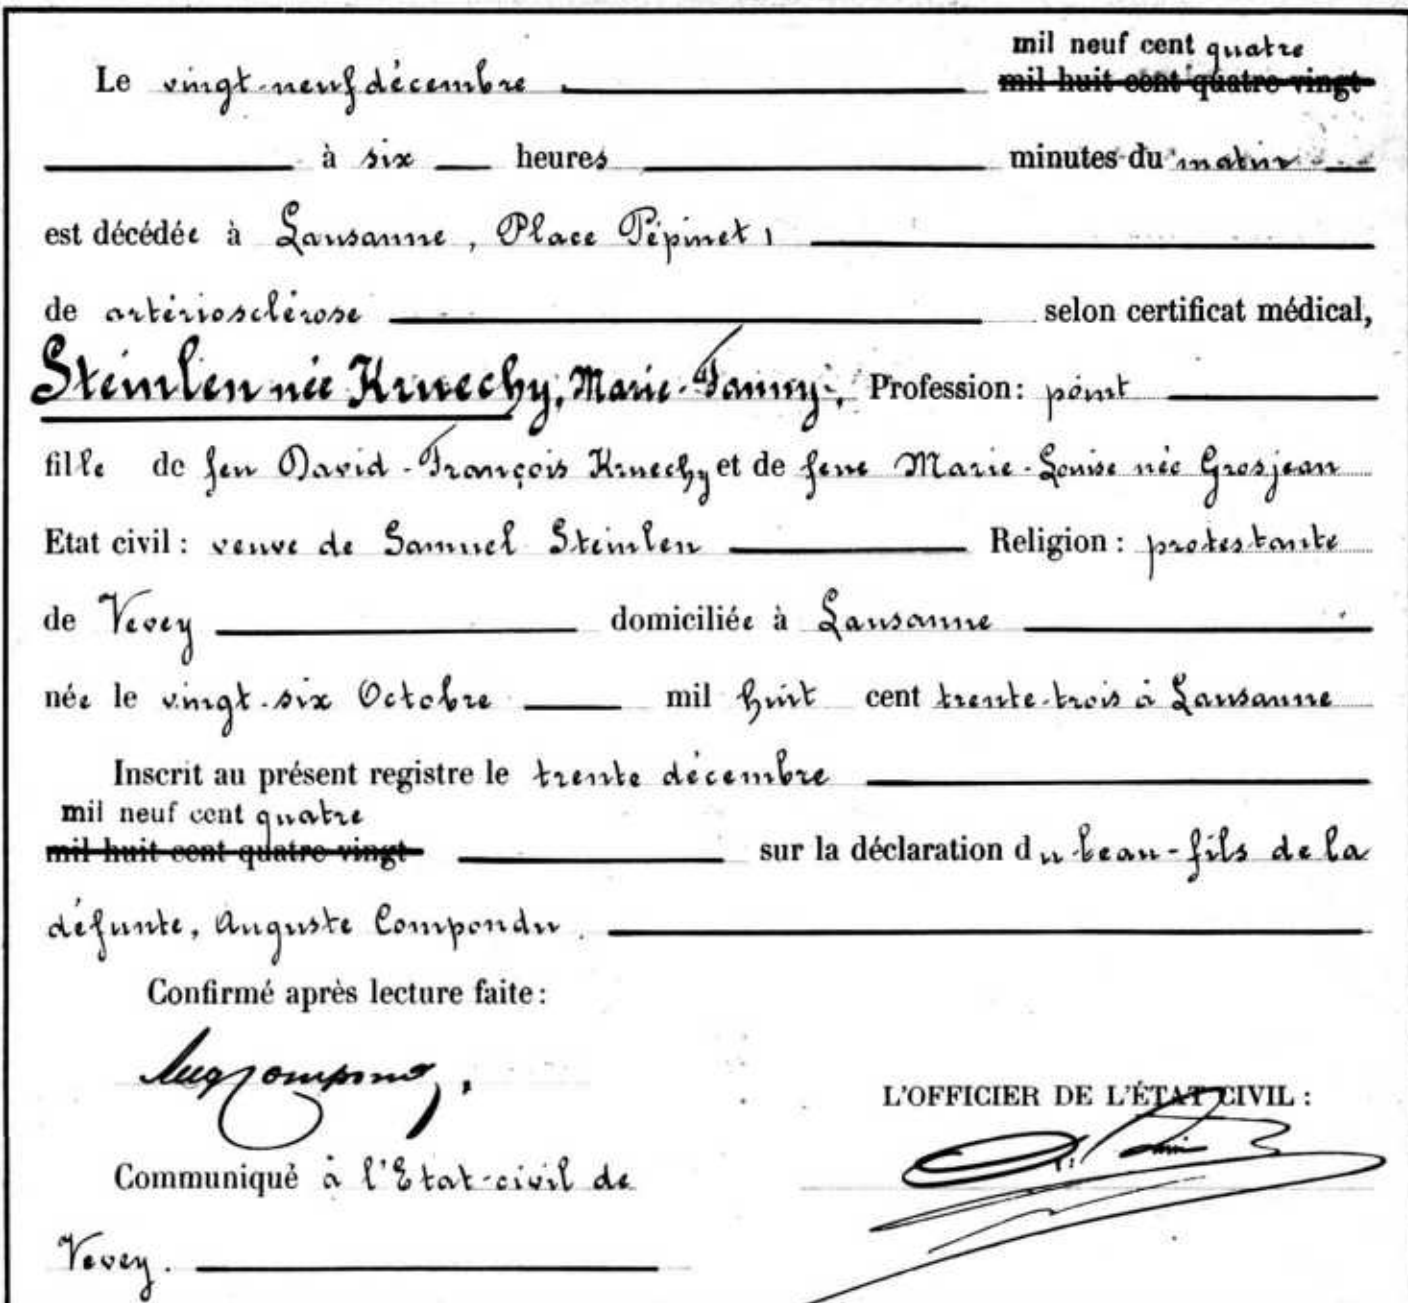 mil neuf cent quatre
Le vingt-neuf décembre mil huit cent quatre-vingt
à six heures minutes du matin
est décédée à Lausanne, Place Pépinet 1
de artériosclérose selon certificat médical,
Steinlen née Kruechy, Marie-Fanny, Profession: point
fille de feu David-François Kruechy et de feue Marie-Louise née Grosjean
Etat civil: veuve de Samuel Steinlen Religion: protestante
de Vevey domiciliée à Lausanne
née le vingt-six Octobre mil huit cent trente-trois à Lausanne
Inscrit au présent registre le trente décembre
mil neuf cent quatre
mil huit cent quatre-vingt sur la déclaration du beau-fils de la
défunte, Auguste Compondu.
Confirmé après lecture faite:
L'OFFICIER DE L'ÉTAT CIVIL:
Communiqué à l'Etat-civil de
Vevey.